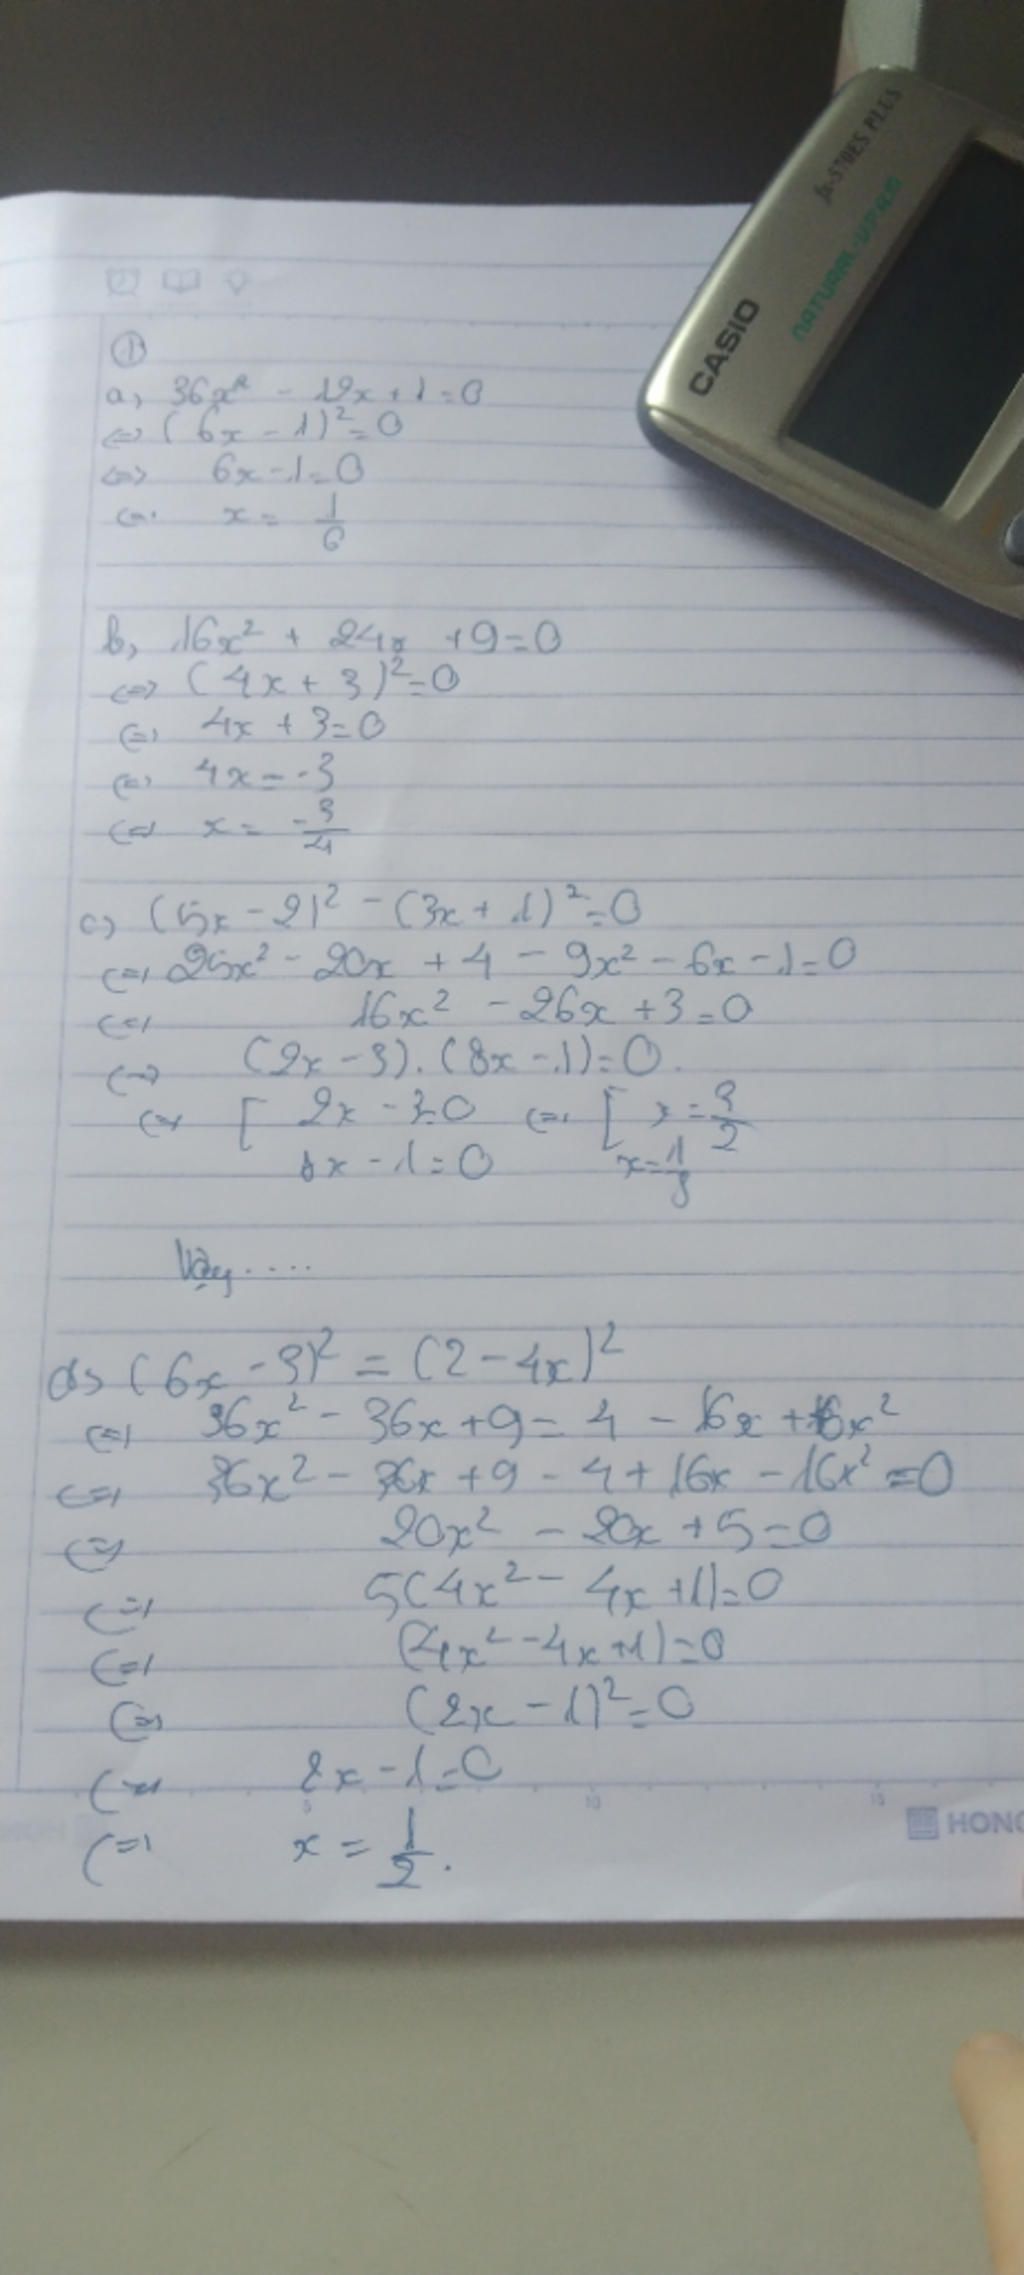 CASIO
fx-570ES PLUS
NATURAL-V.P.A.M.
①
a, 36x² - 12x + 1 = 0
<=> (6x - 1)² = 0
<=> 6x - 1 = 0
<=> x = 1/6
b, 16x² + 24x + 9 = 0
<=> (4x + 3)² = 0
<=> 4x + 3 = 0
<=> 4x = -3
<=> x = -3/4
c) (5x - 2)² - (3x + 1)² = 0
<=> 25x² - 20x + 4 - 9x² - 6x - 1 = 0
<=> 16x² - 26x + 3 = 0
<=> (2x - 3).(8x - 1) = 0.
<=> [ 2x - 3 = 0 <=> [ x = 3/2
8x - 1 = 0 x = 1/8
Vậy.....
d) (6x - 3)² = (2 - 4x)²
<=> 36x² - 36x + 9 = 4 - 16x + 16x²
<=> 36x² - 36x + 9 - 4 + 16x - 16x² = 0
<=> 20x² - 20x + 5 = 0
<=> 5(4x² - 4x + 1) = 0
<=> (4x² - 4x + 1) = 0
<=> (2x - 1)² = 0
<=> 2x - 1 = 0
<=> x = 1/2.
5 10 15
HONG